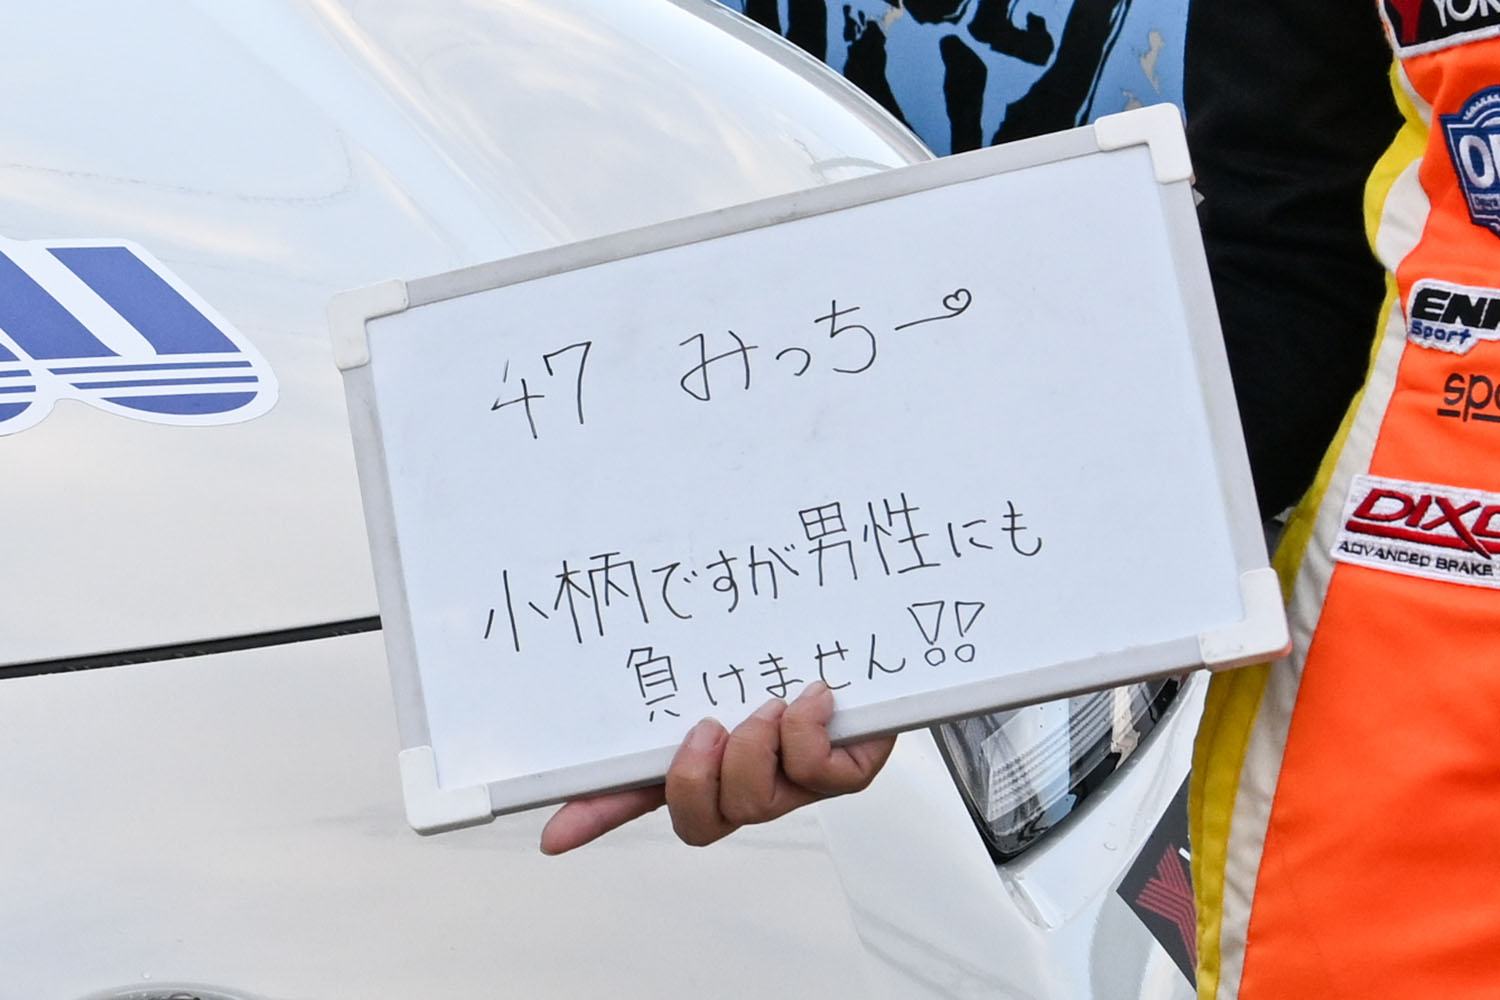 47 みっちー♡
小柄ですが男性にも
負けません!!
ENK
Sport
DIXC
ADVANCED BRAKE